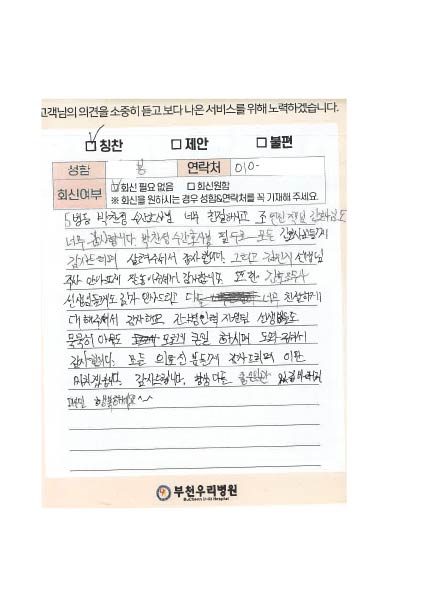 고객님의 의견을 소중히 듣고 보다 나은 서비스를 위해 노력하겠습니다.
칭찬 제안 불편
성함 봄 연락처 010-
회신여부 회신 필요 없음 회신원함
※ 회신을 원하시는 경우 성함&연락처를 꼭 기재해 주세요.
5병동 수간호사님 너무 친절하시고
너무 감사합니다 수간호사님 필두로 모든 간호사님들께
감사드리며 살려주셔서 감사합니다. 그리고 선생님
주사 안아프게 잘 놓아주셔서 감사합니다. 또한
선생님들께도 감사 인사드리고 다들 너무 친절하게
대해주셔서 감사하고 간호병인력 지원팀 선생님들도
묵묵히 아무도 모르게 큰일 하시며 도와주셔서
감사합니다. 모든 의료진 분들께 감사드리며 이만
마치겠습니다. 감사드립니다. 항상 다들
매일 행복하세요^^
부천우리병원
Bucheon Woori Hospital